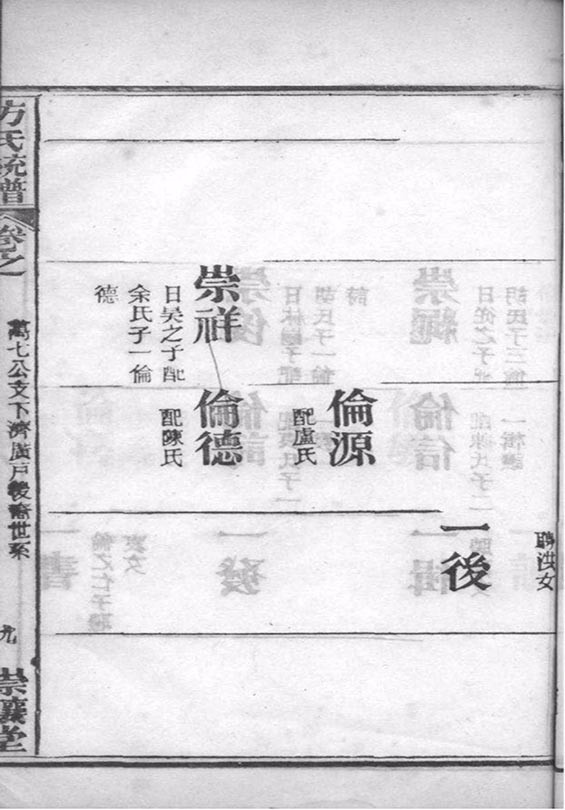 聘洪女
一後
倫源
配盧氏
崇祥
日昊之子配
余氏子一倫
德
倫德
配陳氏
方氏統譜
卷之
萬七公支下濟廣戶後裔世系
九
崇讓堂